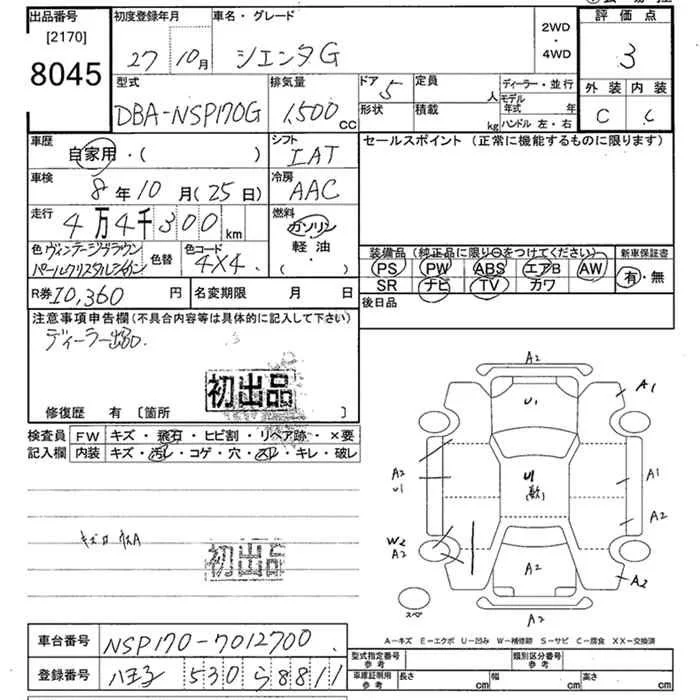 出品番号
[2170]
8045
初度登録年月
27 10月
車名・グレード
シエンタG
2WD
・
4WD
評価点
3
外装 内装
C C
型式
DBA-NSP170G
排気量
1,500 cc
ドア 5
定員 人
形状
積載 kg
ディーラー・並行
モデル年式 年
ハンドル 左・右
車歴
自家用・( )
シフト
IAT
セールスポイント (正常に機能するものに限ります)
車検
8年10月(25日)
冷房
AAC
走行
4万4千300km
燃料
ガソリン
軽油・
( )
色 ヴィンテージブラウン
パールクリスタルシャイン
色替
色コード
4X4
装備品(純正品に限り○をつけてください)
PS PW ABS エアB AW
SR ナビ TV カワ
新車保証書
有・無
R券 10,360円
名変期限 月 日
後日品
注意事項申告欄(不具合内容等は具体的に記入して下さい)
ディーラー出品
初出品
修復歴 有 [箇所 ]
検査員
記入欄
FW キズ・飛石・ヒビ割・リペア跡・×要
内装 キズ・汚レ・コゲ・穴・スレ・キレ・破レ
初出品
A2
A1
U1
A2
U1
U1
A1
A2
W2
A2
A2
A2
A2
スペア
A-キズ E-エクボ U-凹み W-補修跡 S-サビ C-腐食 XX-交換済
車台番号
NSP170-7012700
登録番号
八王子 530 ら 8811
型式指定番号
参考
類別区分番号
参考
車庫証明用
参考
長さ cm
幅 cm
高さ cm